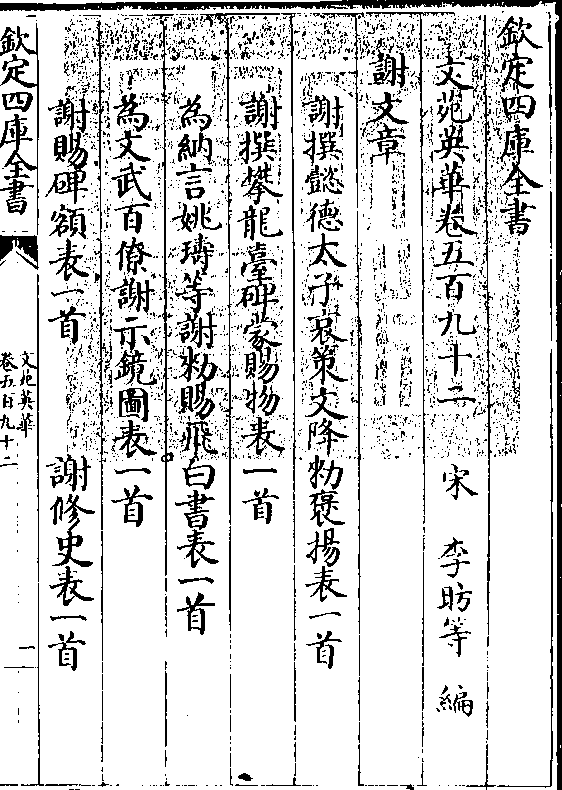 欽定四庫全書
文苑英華卷五百九十二　宋　李昉等　編
謝文章
謝撰懿德太子哀策文降勑褒揚表一首
謝撰攀龍臺碑蒙賜物表一首
為納言姚璹等謝勑賜飛白書表一首
為文武百僚謝示鏡圖表一首
謝賜碑額表一首　謝修史表一首
欽定四庫全書
文苑英華
卷五百九十二
一